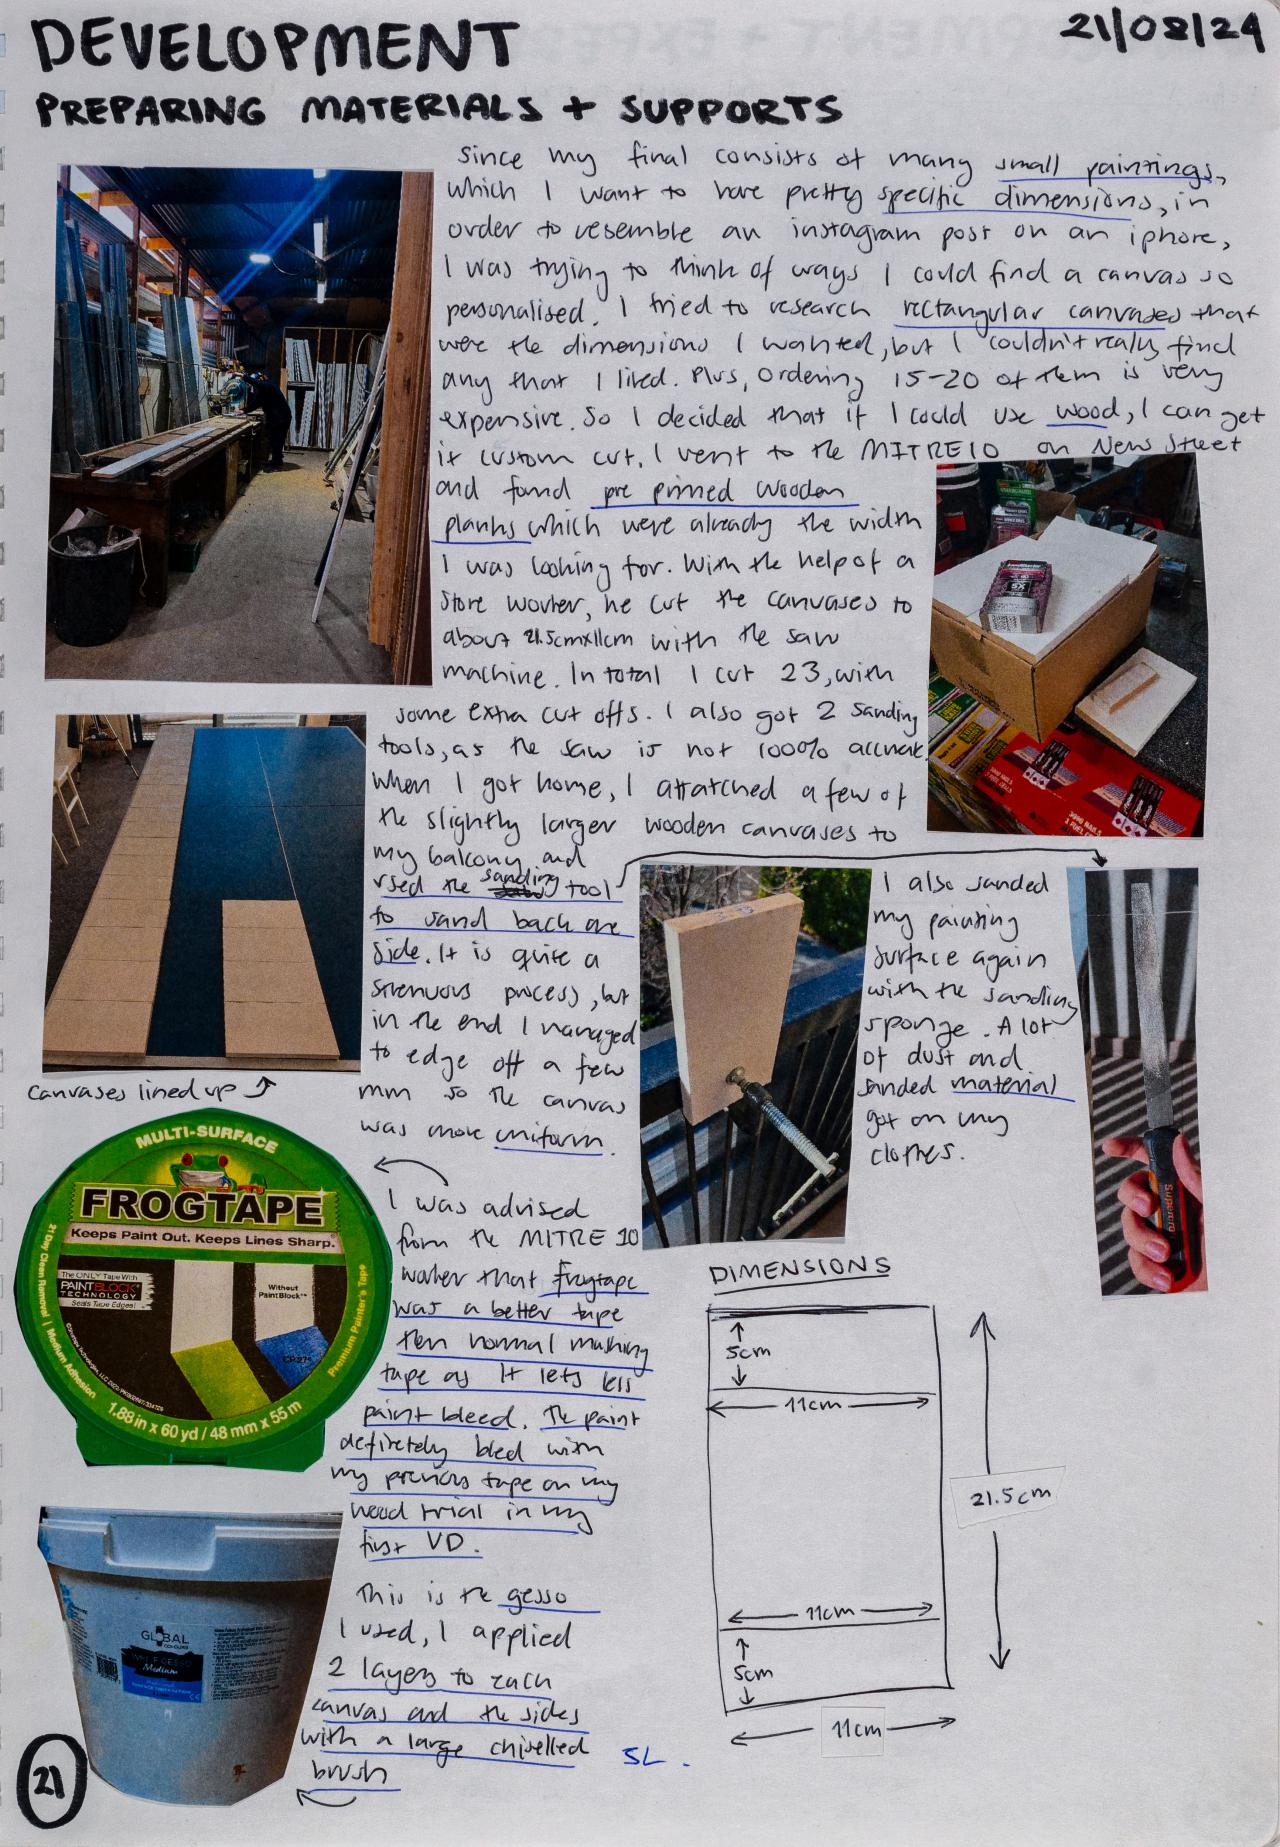 DEVELOPMENT
21/08/24
PREPARING MATERIALS + SUPPORTS
Since my final consists of many small paintings,
which I want to have pretty specific dimensions, in
order to resemble an instagram post on an iphone,
I was trying to think of ways I could find a canvas so
personalised. I tried to research rectangular canvases that
were the dimensions I wanted, but I couldn't really find
any that I liked. Plus, ordering 15-20 of them is very
expensive. So I decided that if I could use wood, I can get
it custom cut. I went to the MITRE10 on New Street
and found pre primed wooden
planks which were already the width
I was looking for. With the help of a
store worker, he cut the canvases to
about 21.5cmx11cm with the saw
machine. In total I cut 23, with
some extra cut offs. I also got 2 sanding
tools, as the saw is not 100% accurate.
When I got home, I attatched a few of
the slightly larger wooden canvases to
my balcony and
used the sanding tool
to sand back one
side. It is quite a
strenuous process, but
in the end I managed
to edge off a few
mm so the canvas
was more uniform.
I also sanded
my painting
surface again
with the sanding
sponge. A lot
of dust and
sanded material
got on my
clothes.
Supercraft
canvases lined up
MULTI-SURFACE
FROGTAPE
Keeps Paint Out. Keeps Lines Sharp.
The ONLY Tape With
PAINTBLOCK
TECHNOLOGY
Seals Tape Edges!
Without
PaintBlock™
21 Day Clean Removal | Medium Adhesion
Premium Painter's Tape
1.88 in x 60 yd / 48 mm x 55 m
I was advised
from the MITRE 10
worker that frogtape
was a better tape
then normal masking
tape as it lets less
paint bleed. The paint
definetely bled with
my previous tape on my
wood trial in my
first VD.
GLOBAL
COLOURS
WHITE GESSO
Medium
This is the gesso
I used, I applied
2 layers to each
canvas and the sides
with a large chiselled
brush
SL.
DIMENSIONS
5cm
11cm
21.5cm
11cm
5cm
11cm
21